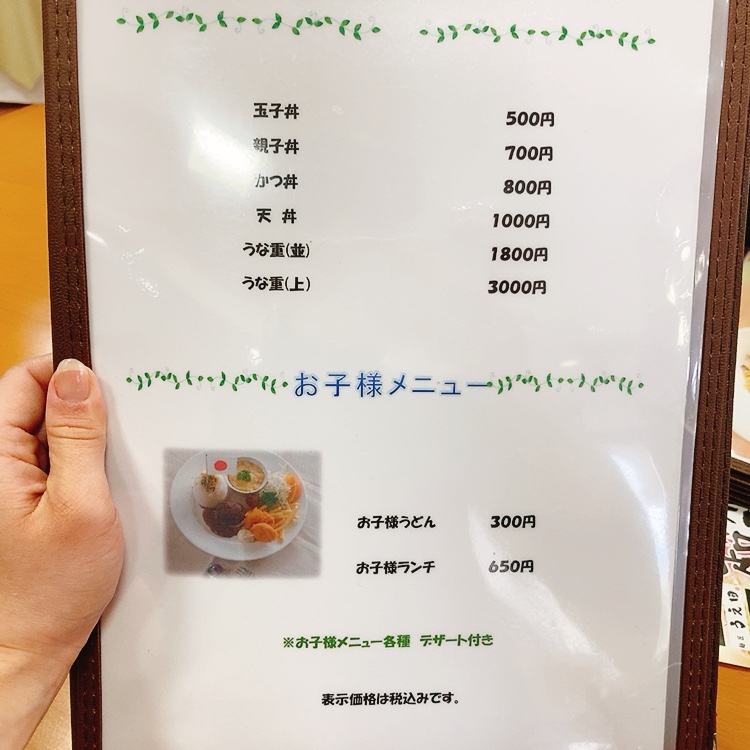 玉子丼 500円
親子丼 700円
かつ丼 800円
天 丼 1000円
うな重(並) 1800円
うな重(上) 3000円
お子様メニュー
お子様うどん 300円
お子様ランチ 650円
※お子様メニュー各種 デザート付き
表示価格は税込みです。